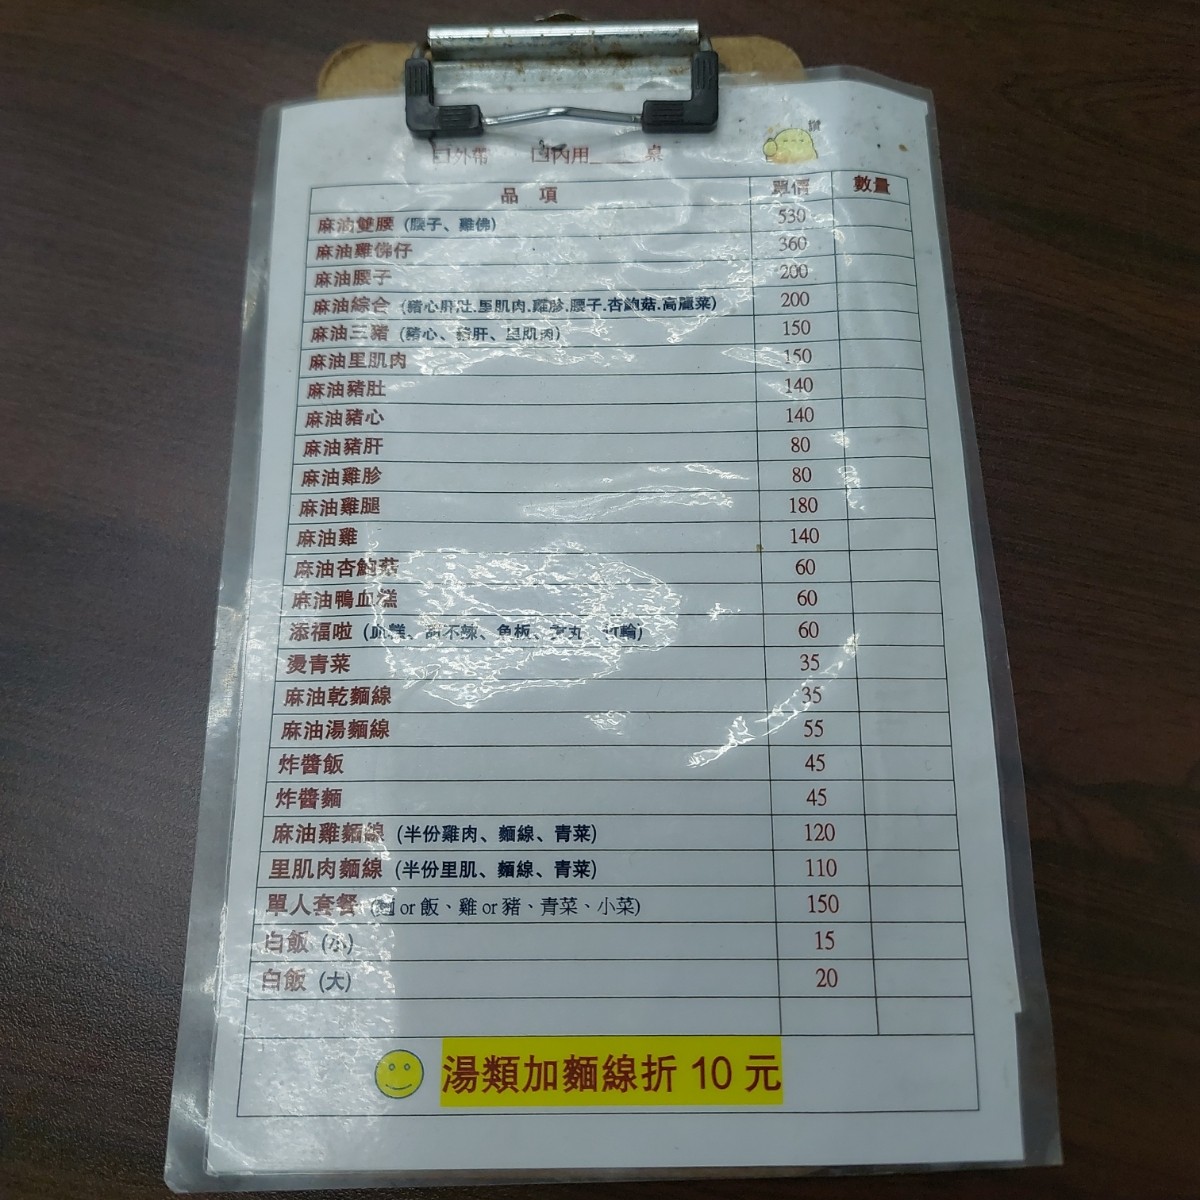 □外帶 □內用____桌
品 項 單價 數量
麻油雙腰 (腰子、雞佛) 530
麻油雞佛仔 360
麻油腰子 200
麻油綜合 (豬心肝肚.里肌肉.雞胗.腰子.杏鮑菇.高麗菜) 200
麻油三豬 (豬心、豬肝、里肌肉) 150
麻油里肌肉 150
麻油豬肚 140
麻油豬心 140
麻油豬肝 80
麻油雞胗 80
麻油雞腿 180
麻油雞 140
麻油杏鮑菇 60
麻油鴨血糕 60
添福啦 (血糕、甜不辣、魚板、 丸、竹輪) 60
燙青菜 35
麻油乾麵線 35
麻油湯麵線 55
炸醬飯 45
炸醬麵 45
麻油雞麵線 (半份雞肉、麵線、青菜) 120
里肌肉麵線 (半份里肌、麵線、青菜) 110
單人套餐 (麵 or 飯、雞 or 豬、青菜、小菜) 150
白飯 (小) 15
白飯 (大) 20
湯類加麵線折 10 元